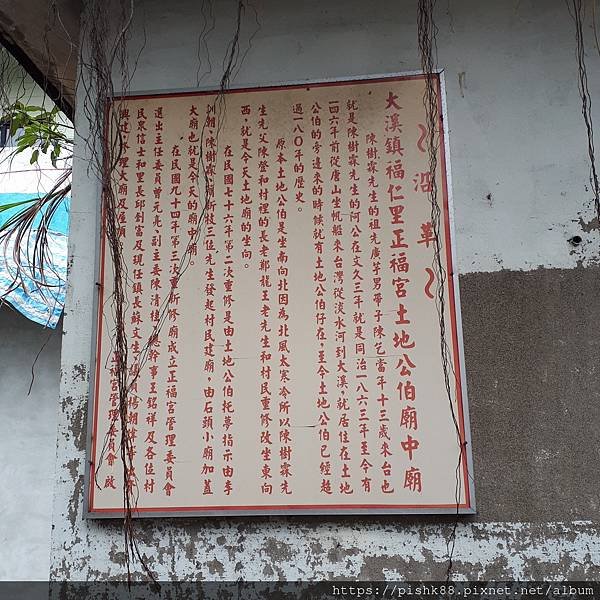 ～沿革～
大溪鎮福仁里正福宮土地公伯廟中廟
陳樹霖先生的祖先廣芽男帶子陳乞當年十三歲來台也
就是陳樹霖先生的阿公在文久三年就是同治一八六三年至今有
一四六年前從唐山坐帆船來台灣從淡水河到大溪，就居住在土地
公伯的旁邊來的時候就有土地公伯仔在，至今土地公伯已經超
過一八０年的歷史。
原本土地公伯是坐南向北因為北風太寒冷所以陳樹霖先
生先父陳營和村裡的長老鄭龍王老先生和村民重修改坐東向
西，就是今天土地廟的坐向。
在民國七十六年第二次重修是由土地公伯托夢指示由李
訓朝、陳樹霖、簡新枝三位先生發起村民建廟，由石頭小廟加蓋
大廟也就是今天的廟中廟
在民國九十四年第三次重新修廟成立正福宮管理委員會
選出主任委員曾元亮副主委陳清桂總幹事王銘祥及各位村
民眾信士和里長邱創富及現任鎮長蘇文生、議員楊朝偉
興建、修理大廟及屋頂
正福宮管理委員會 啟
https://pishk88.pixnet.net/album